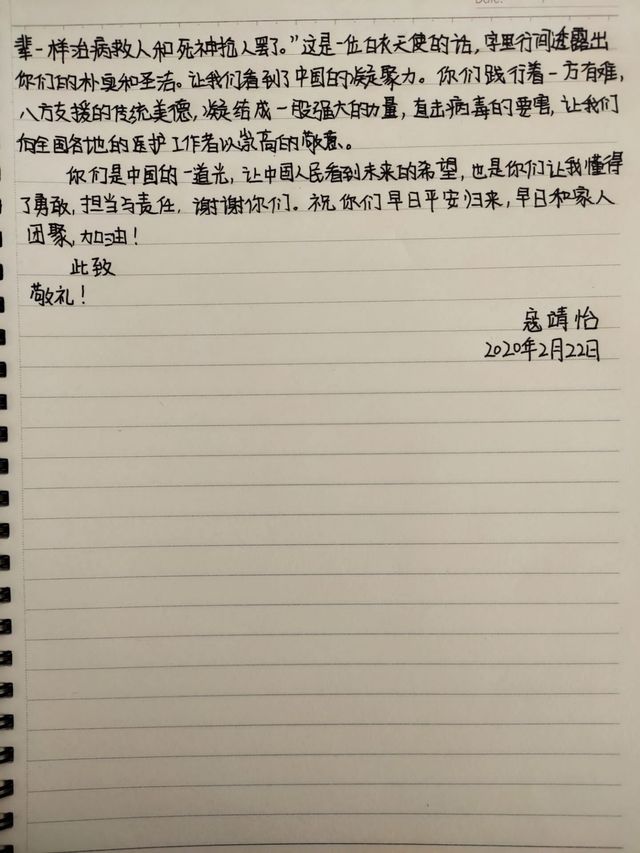 辈一样治病救人和死神抢人罢了。”这是一位白衣天使的话，字里行间透露出
你们的朴实和圣洁。让我们看到了中国的凝聚力。你们践行着一方有难，
八方支援的传统美德，凝结成一股强大的力量，直击病毒的要害，让我们
向全国各地的医护工作者以崇高的敬意。
你们是中国的一道光，让中国人民看到未来的希望，也是你们让我懂得
了勇敢，担当与责任，谢谢你们。祝你们早日平安归来，早日和家人
团聚，加油！
此致
敬礼！
寇靖怡
2020年2月22日